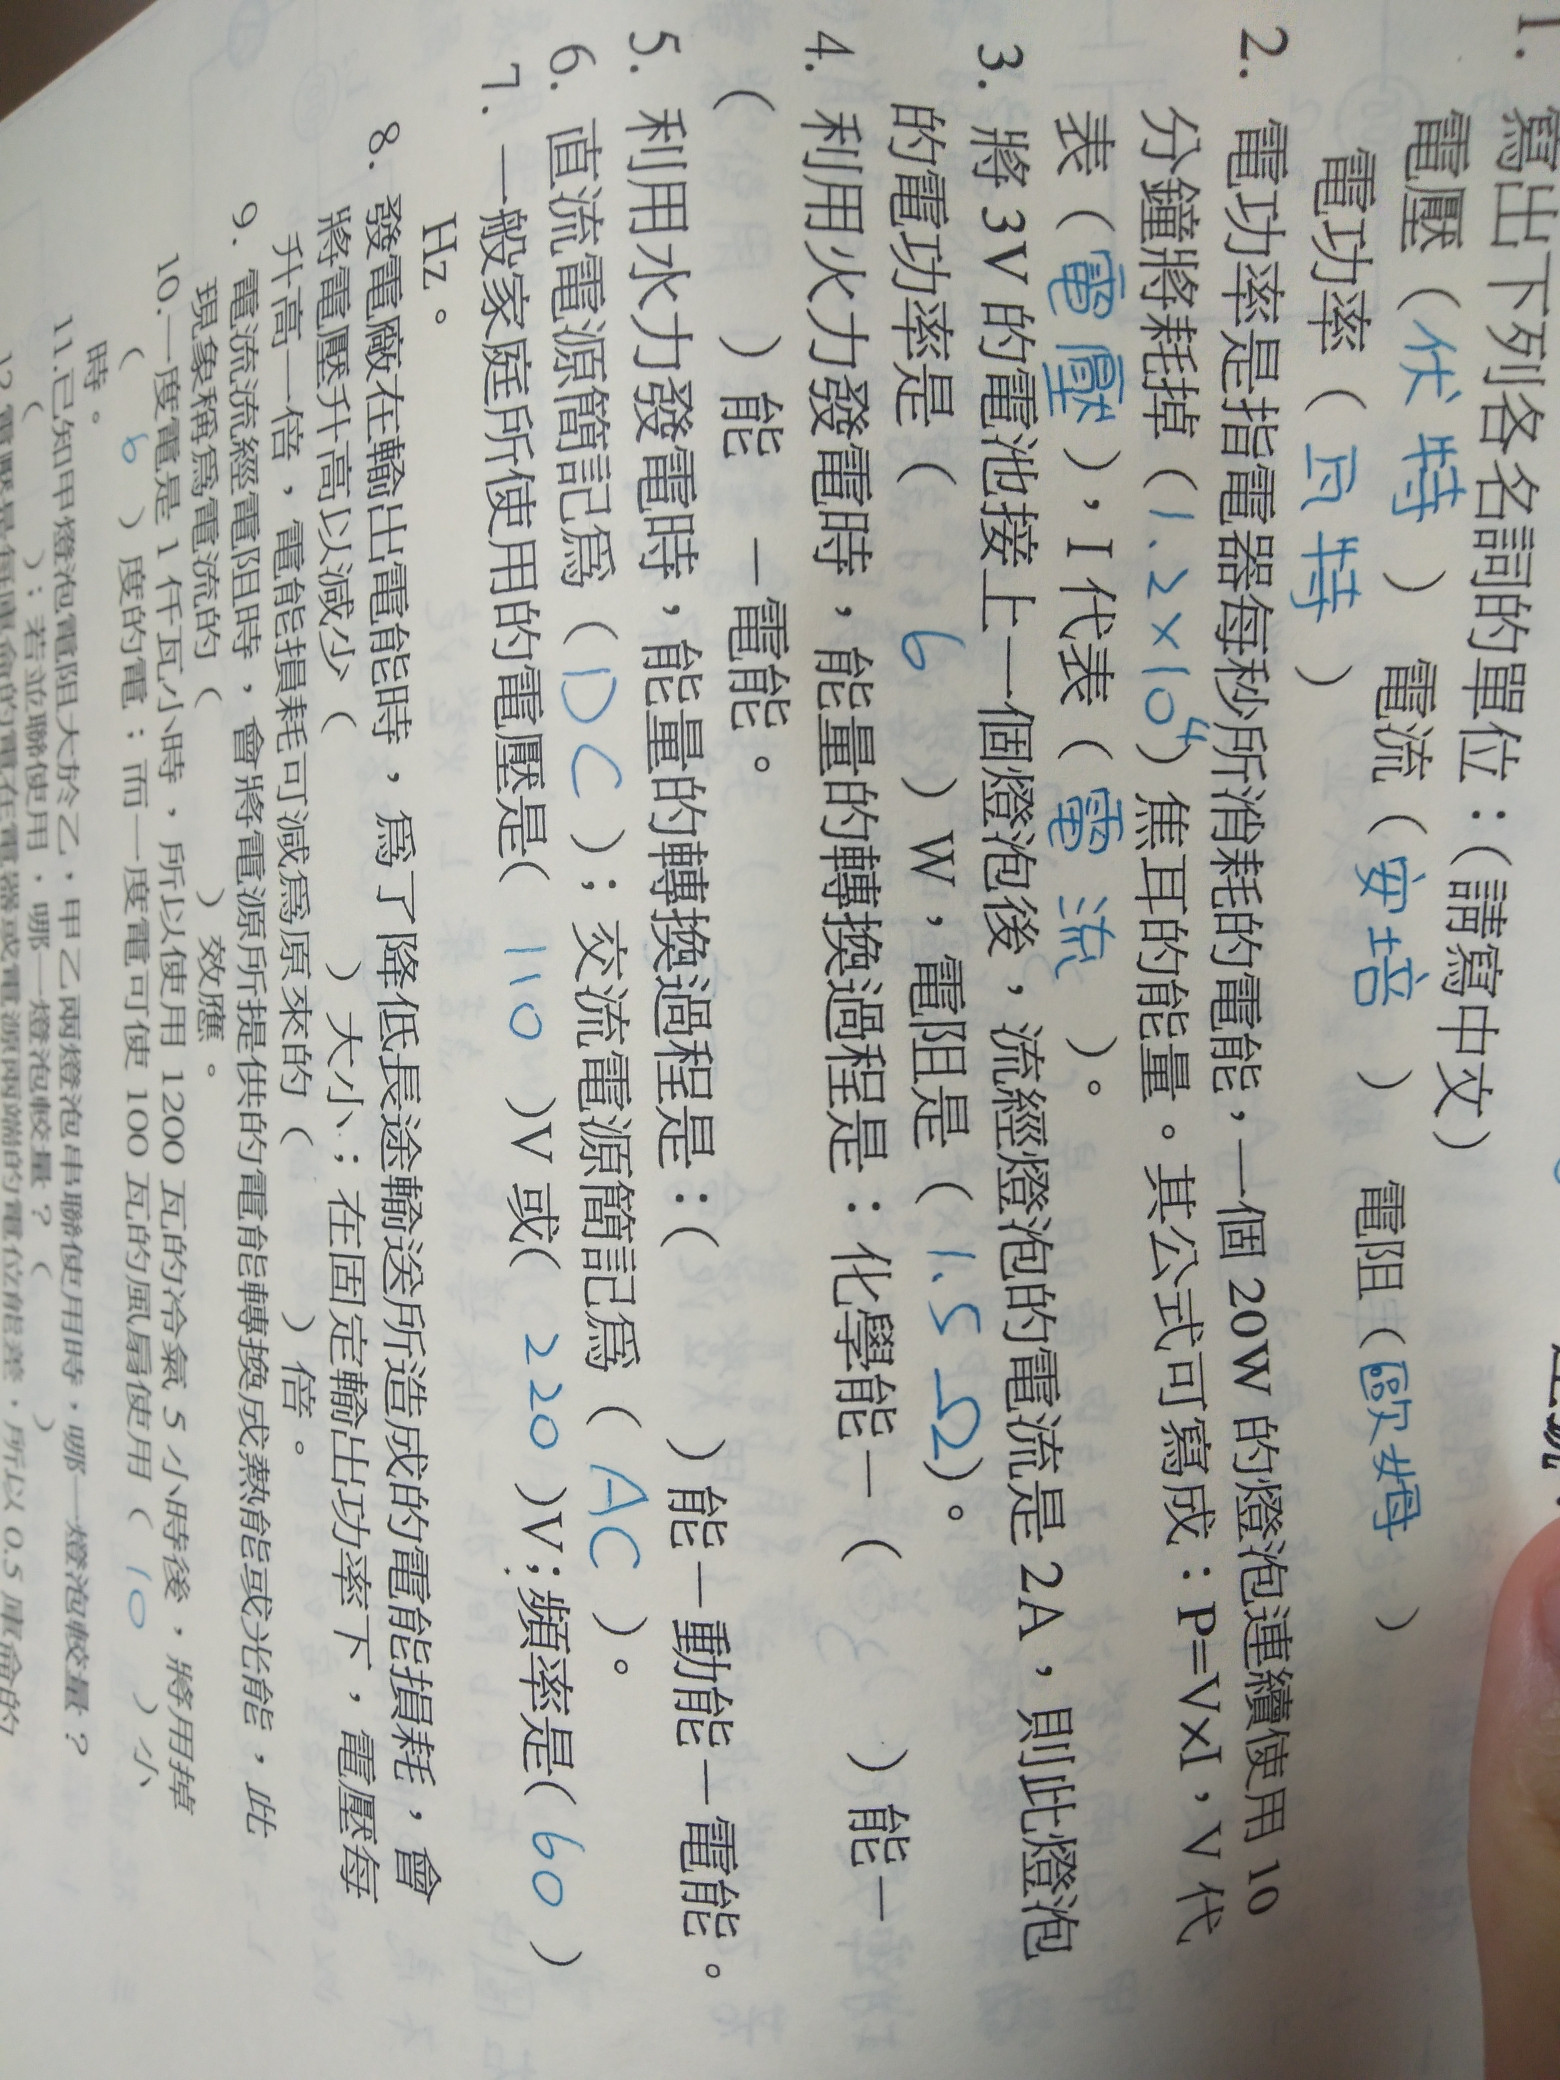 1. 寫出下列各名詞的單位：(請寫中文)
電壓（伏特）電流（安培）電阻（歐姆）
電功率（瓦特）
2. 電功率是指電器每秒所消耗的電能，一個 20W 的燈泡連續使用 10
分鐘將耗掉（1.2×10⁴）焦耳的能量。其公式可寫成：P=V×I，V 代
表（電壓），I 代表（電流）。
3. 將 3V 的電池接上一個燈泡後，流經燈泡的電流是 2A，則此燈泡
的電功率是（6）W，電阻是（1.5Ω）。
4. 利用火力發電時，能量的轉換過程是：化學能－（ ）能－
（ ）能－電能。
5. 利用水力發電時，能量的轉換過程是：（ ）能－動能－電能。
6. 直流電源簡記為（DC）；交流電源簡記為（AC）。
7. 一般家庭所使用的電壓是(110)V 或(220)V；頻率是(60)
Hz。
8. 發電廠在輸出電能時，為了降低長途輸送所造成的電能損耗，會
將電壓升高以減少（ ）大小；在固定輸出功率下，電壓每
升高一倍，電能損耗可減為原來的（ ）倍。
9. 電流流經電阻時，會將電源所提供的電能轉換成熱能或光能，此
現象稱為電流的（ ）效應。
10.一度電是 1 仟瓦小時，所以使用 1200 瓦的冷氣 5 小時後，將用掉
（6）度的電；而一度電可使 100 瓦的風扇使用（10）小
時。
11.已知甲燈泡電阻大於乙，甲乙兩燈泡串聯使用時，哪一燈泡較量？
（ ）；若並聯使用，哪一燈泡較量？（ ）
12.電壓是每庫侖的電在電器或電源兩端的電位能差，所以 0.5 庫侖的